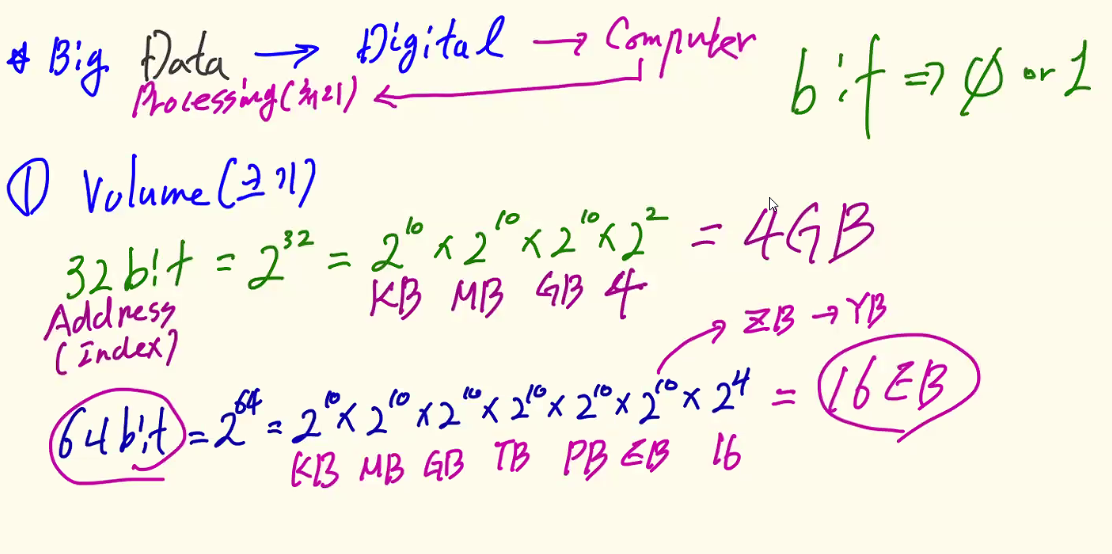 * Big Data → Digital → Computer
Processing(처리)
bit ⇒ Ø or 1
① Volume(크기)
32bit = 2³² = 2¹⁰ × 2¹⁰ × 2¹⁰ × 2² = 4GB
KB MB GB 4
Address
(Index)
ZB → YB
64bit = 2⁶⁴ = 2¹⁰ × 2¹⁰ × 2¹⁰ × 2¹⁰ × 2¹⁰ × 2¹⁰ × 2⁴ = 16EB
KB MB GB TB PB EB 16